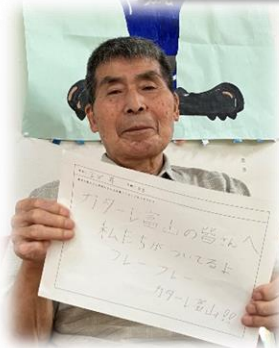 カターレ富山の皆さんへ
私たちがついてるよ
フレーフレー
カターレ富山!!!